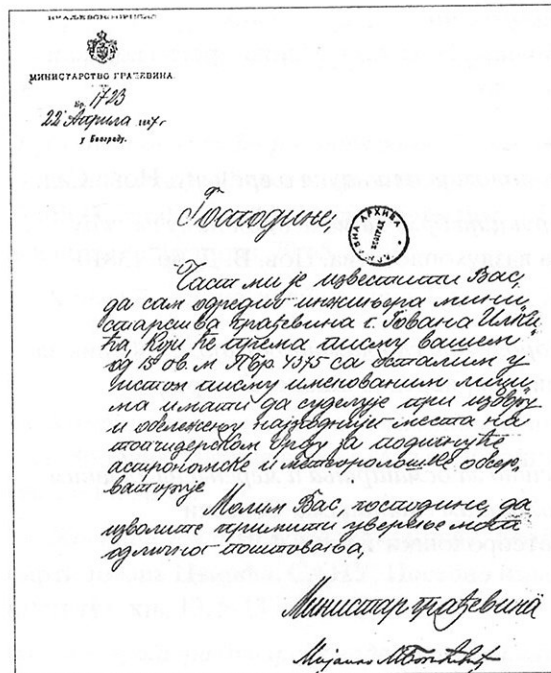 КРАЉЕВСКО-СРПСКО
МИНИСТАРСТВО ГРАЂЕВИНА
Бр. 1723
22 Априла
у Београду.
Господине,
АРХИВА
Част ми је известити Вас,
да сам одредио инжињера мини
старства грађевина г. Јована Илки
ћа, који ће према писму вашем
од 15 ов. м ПБр. 4375 са осталим у
истом писму именованим лици
ма имати да суделује при избору
и обележењу најгоднији места на
топчидерском брду за подигнуће
астрономске и метеоролошке обсер
ваторије
Молим Вас, господине, да
изволите примити уверење мога
одличног поштовања,
Министар грађевина